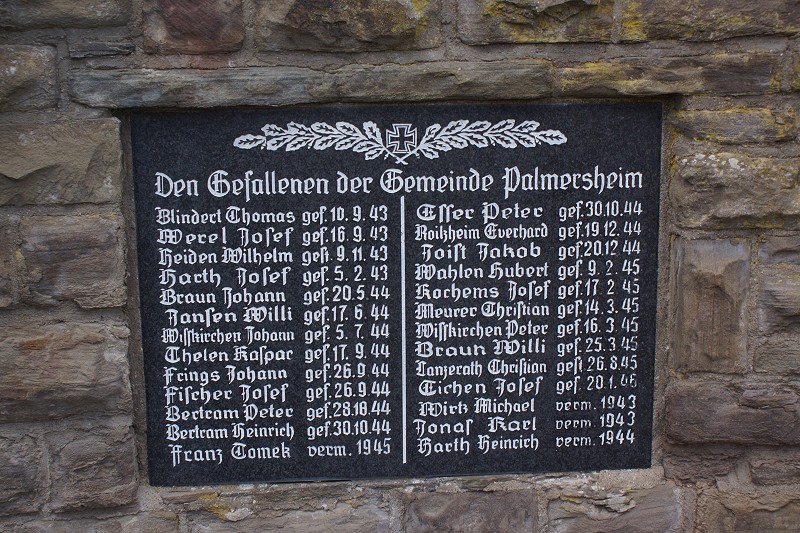 Den Gefallenen der Gemeinde Palmersheim
Blindert Thomas gef. 10. 9. 43
Werel Josef gef. 16. 9. 43
Heiden Wilhelm gest. 9. 11. 43
Harth Josef gef. 5. 2. 43
Braun Johann gef. 20. 5. 44
Jansen Willi gef. 17. 6. 44
Wisskirchen Johann gef. 5. 7. 44
Thelen Kaspar gef. 17. 9. 44
Frings Johann gef. 26. 9. 44
Fischer Josef gef. 26. 9. 44
Bertram Peter gef. 28. 10. 44
Bertram Heinrich gef. 30. 10. 44
Franz Tomek verm. 1945
Esser Peter gef. 30. 10. 44
Roitzheim Everhard gef. 19. 12. 44
Joist Jakob gef. 20. 12. 44
Wahlen Hubert gef. 9. 2. 45
Kochems Josef gef. 17. 2. 45
Meurer Christian gef. 14. 3. 45
Wisskirchen Peter gef. 16. 3. 45
Braun Willi gef. 25. 3. 45
Lanzerath Christian gest. 26. 8. 45
Eichen Josef gef. 20. 1. 46
Wirtz Michael verm. 1943
Jonas Karl verm. 1943
Harth Heinrich verm. 1944